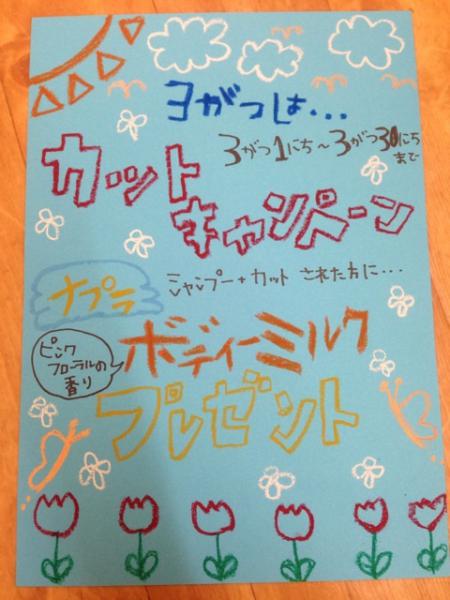 3がつは...
3がつ1にち〜3がつ30にち
まで
カット
キャンペーン
ナプラ
シャンプー+カット された方に...
ピンク
フローラルの
香り
ボディーミルク
プレゼント